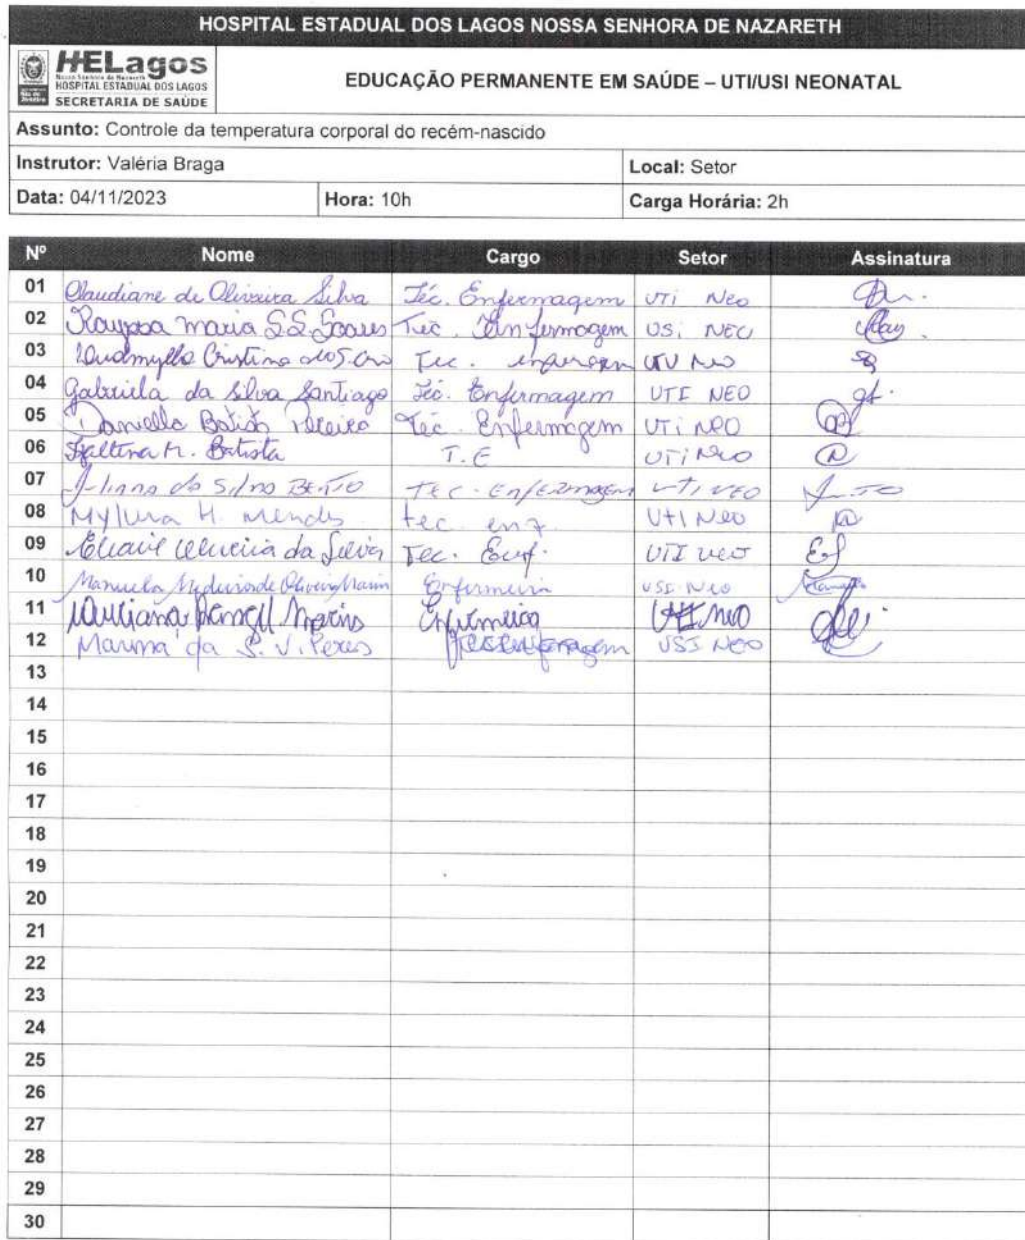 HOSPITAL ESTADUAL DOS LAGOS NOSSA SENHORA DE NAZARETH
HELagos
Nossa Senhora de Nazareth
HOSPITAL ESTADUAL DOS LAGOS
SECRETARIA DE SAÚDE
EDUCAÇÃO PERMANENTE EM SAÚDE – UTI/USI NEONATAL
Assunto: Controle da temperatura corporal do recém-nascido
Instrutor: Valéria Braga Local: Setor
Data: 04/11/2023 Hora: 10h Carga Horária: 2h
Nº Nome Cargo Setor Assinatura
01 Claudiane de Oliveira Silva Téc. Enfermagem UTI Neo
02 Rayssa Maria S.S. Soares Tec. Enfermagem USi NEO
03 Cristina Tec. Neo
04 Gabriela da Silva Santiago Téc. Enfermagem UTI NEO
05 Danielle Batista Pereira Téc. Enfermagem UTi NEO
06 M. Batista T.E UTi Neo
07 Juliana da Silva BENTO TEC. ENFERMAGEM UTI NEO
08 H. Mendes tec enf UTI Neo
09 Oliveira da Silva Tec. Enf. UTI Neo
10 Manuela de Oliveira Marin Enfermeira USI Neo
11 Enfermeira UTI Neo
12 Marina da S. V. Peres USI NEO
13
14
15
16
17
18
19
20
21
22
23
24
25
26
27
28
29
30